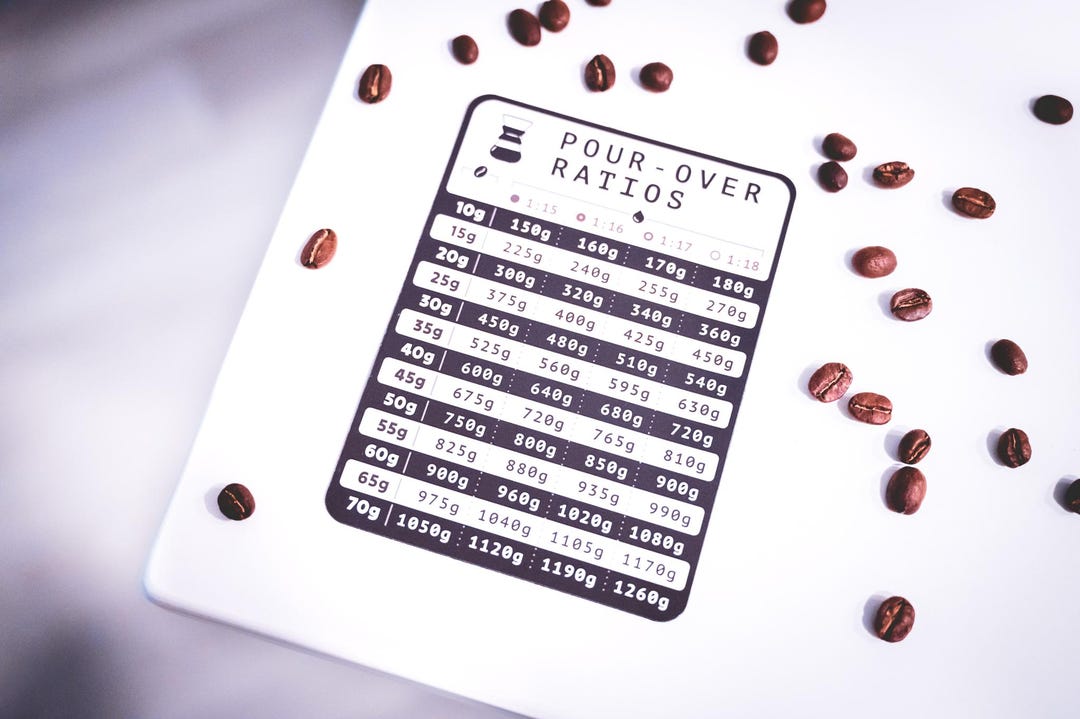 POUR-OVER
RATIOS
1:15 1:16 1:17 1:18
10g 150g 160g 170g 180g
15g 225g 240g 255g 270g
20g 300g 320g 340g 360g
25g 375g 400g 425g 450g
30g 450g 480g 510g 540g
35g 525g 560g 595g 630g
40g 600g 640g 680g 720g
45g 675g 720g 765g 810g
50g 750g 800g 850g 900g
55g 825g 880g 935g 990g
60g 900g 960g 1020g 1080g
65g 975g 1040g 1105g 1170g
70g 1050g 1120g 1190g 1260g